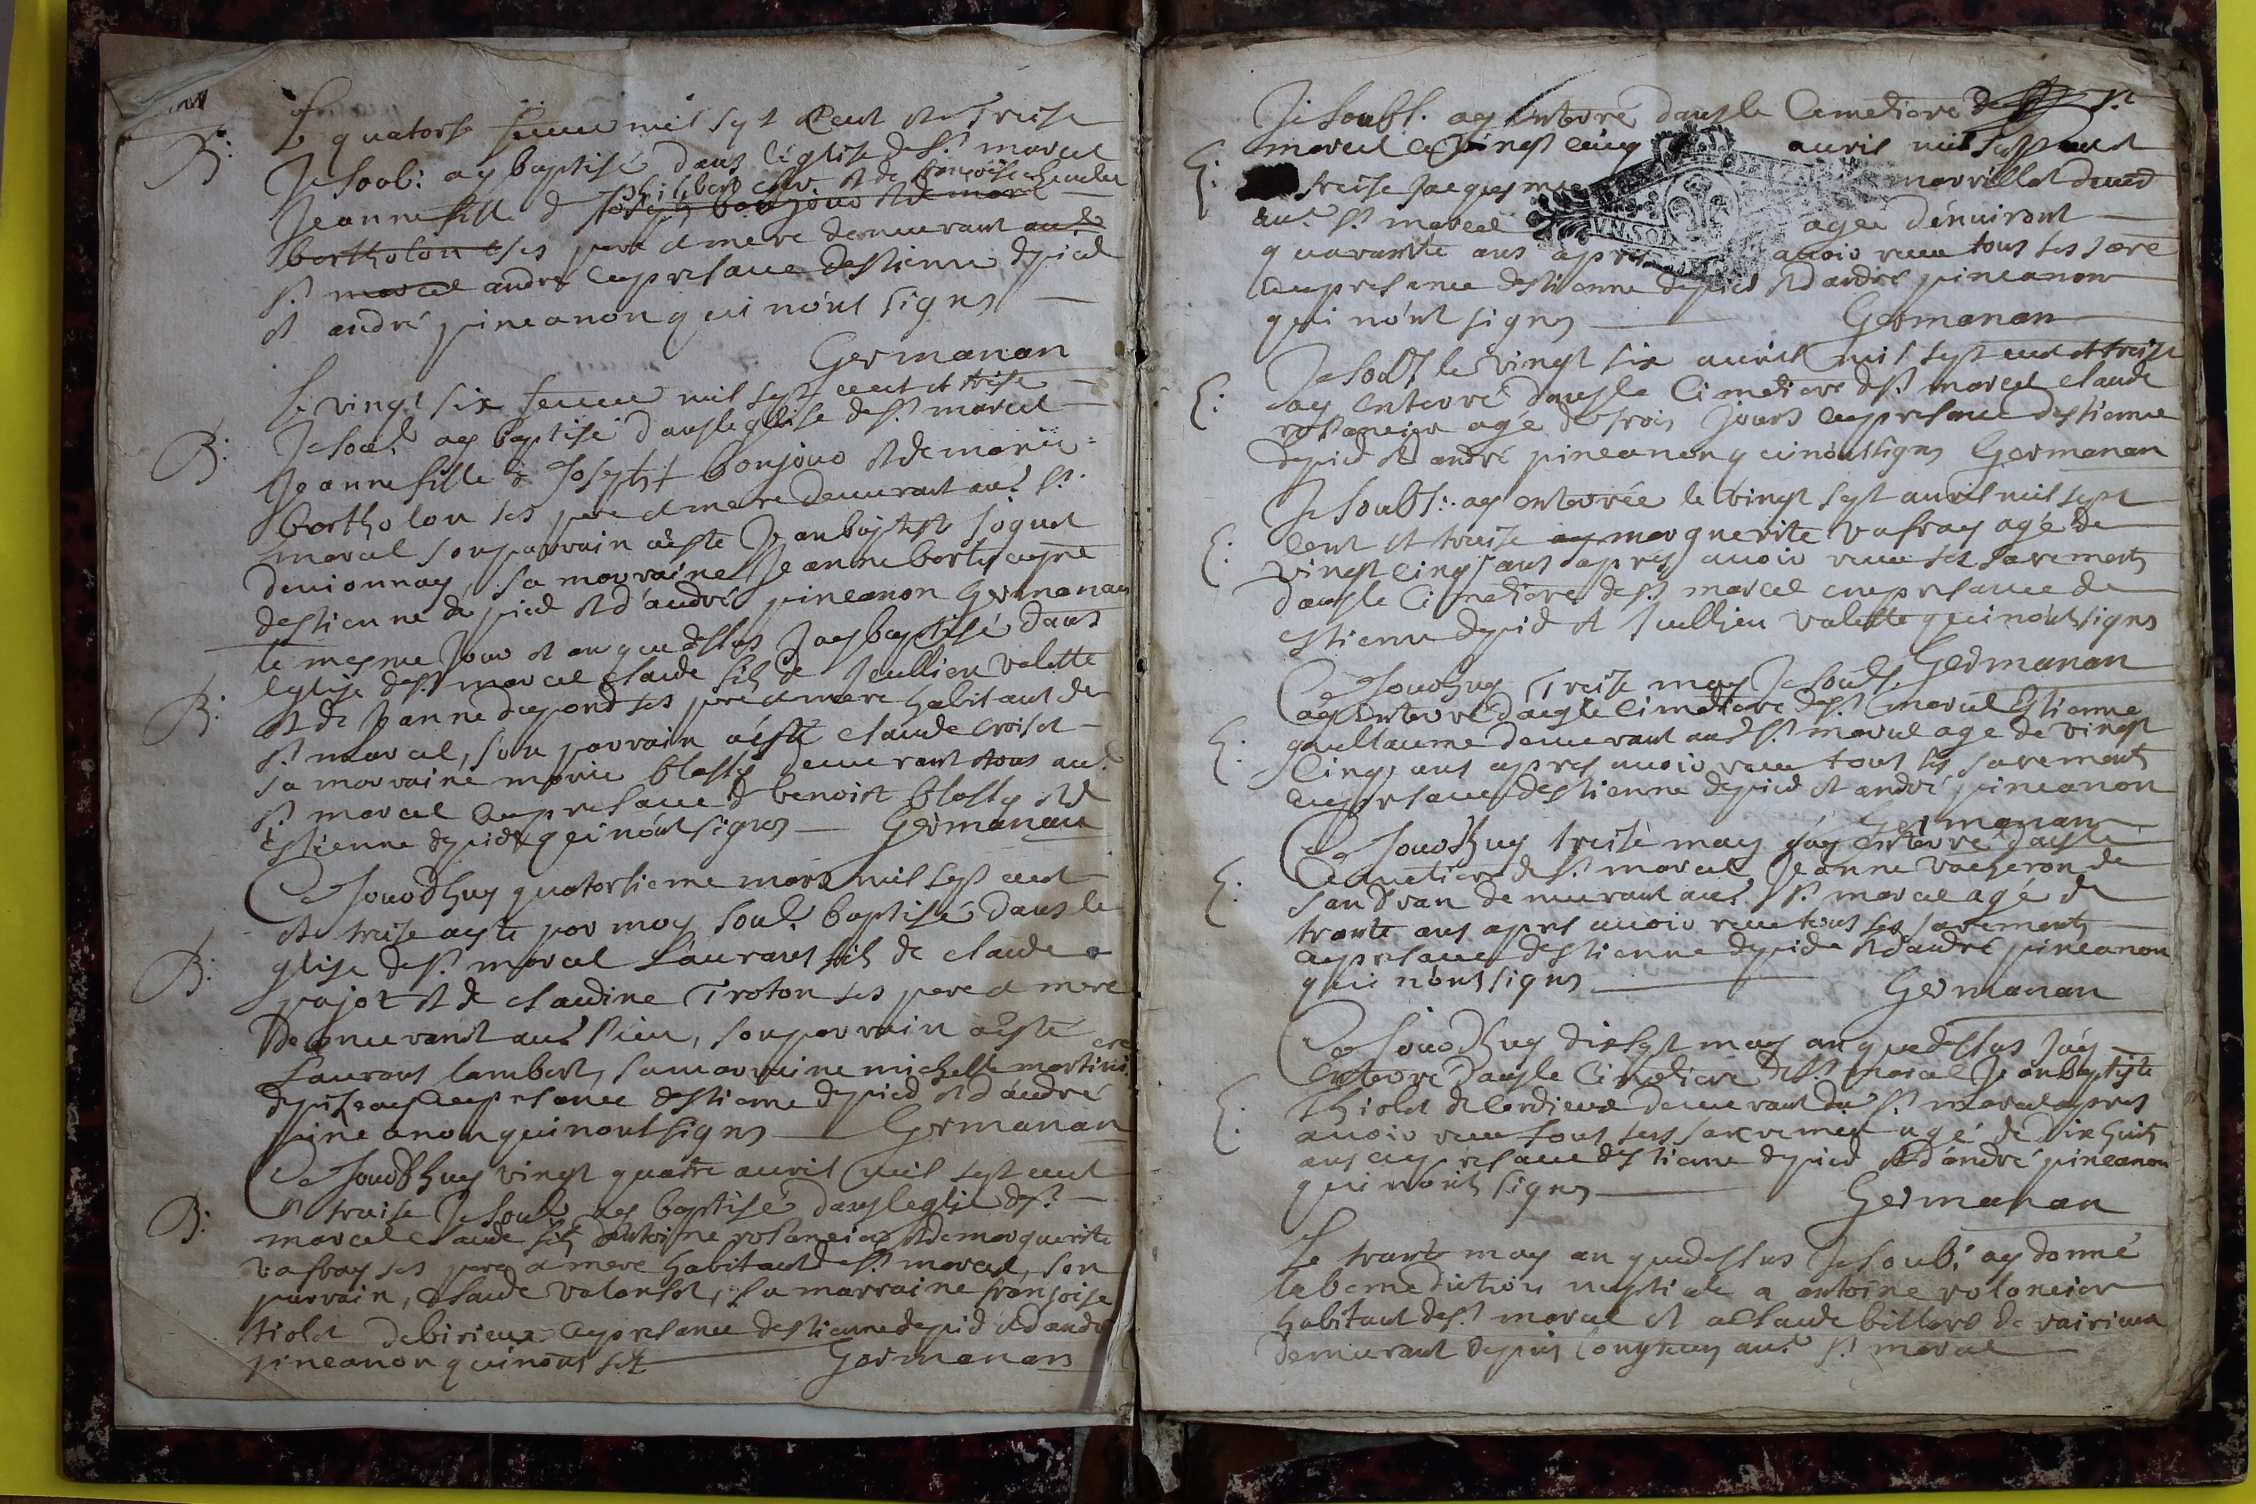 B:
Le quatorse feuue mil sept Cent et Treise
Je soub: ay baptisé dans l'église de st marcel
philibert et de françoise
Jeanne fille de Joseph bonjour et de marie
bertholon ses pere et mere demeurant aud
st marcel andré en presance destienne depied
et andré pineanon qui n'ont signes
Germanan
Le vingt six feuue mil sept cent et treise
B:
Je soub. ay baptisé dans leglise de st marcel
Jeanne fille de Joseph bonjour et de marie
bertholon ses pere et mere demeurant aud st
marcel son parrain a este Jean baptiste joquet
de uionnay, sa marraine Jeanne
destienne depied et d'andré pineanon Germanan
le mesme Jour et an que dessus J'ay baptisé dans
B:
leglise de st marcel claude fils de Jeullien valette
et de Jeanne dupond ses pere et mere habitant de
st marcel, son parrain a este claude croiset
sa marraine marie blassy demeurant tous aud
st marcel en presance de benoist blassy et d
Estienne depied qui n'ont signes Germanan
Ce Jourdhuy quatorsieme mars mil sept cent
et treise a esté par moy soub. baptisé dans le
B:
glise de st marcel Laurant fils de claude
pajot et de claudine Troton ses pere et mere
demeurant aud lieu, son parrain a esté
Laurant lambert, sa marraine michelle martin
en presance destienne depied et d'andré
pineanon qui n'ont signes Germanan
Ce Jourdhuy vingt quatre auril mil sept cent
et treise Je soub. ay baptisé dans leglise de st
B:
marcel claude fils d'antoine rolancier et de marguerite
vafray ses pere et mere habitant de st marcel, son
parrain, claude valanset, sa marraine franҫoise
tiolet de birieux en presance destienne depied et d'andre
pineanon qui n'ont set Germanan
Je soubs. ay enterré dans le Cimetiere de st
E:
marcel le vingt cinq auril mil sept cent
treise Jacques morrillet demt
aud st marcel agée d'enuiront
quarante ans apres auoir receu tous ses sacre
en presance destienne depied et d'andré pineanon
qui n'ont signes Germanan
Je soubs le vingt six auril mil sept cent et treise
E:
ay enterré dans le Cimetiere de st marcel claude
rolancier agé de trois Jours en presance destienne
depied et andré pineanon qui n'ont signes Germanan
Je soubs: ay enterrée le vingt sept auril mil sept
E:
cent et treise marguerite vafray agé de
vingt cinq ans apres auoir receu ses saremens
dans le Cimetiere de st marcel en presance de
estienne depied et Jeullien valette qui n'ont signes
Germanan
Ce Jourdhuy Treise may Je soubs.
ay enterré dans le Cimetiere de st marcel Estienne
E:
guillaume demeurant aud st marcel age de vingt
cinq ans apres auoir receu tous ses saremens
en presance destienne depied et andré pineanon
Germanan
Ce Jourdhuy treise may j'ay enterré dans le
Cimetiere de st marcel Jeanne vacheron de
E:
Sandran demeurant aud st marcel agé de
trante ans apres auoir receu tous ses saremens
en presance destienne depied et d'andré pineanon
qui n'ont signes
Germanan
Ce Jourdhuy dix sept may an que dessus J'ay
enterré dans le Cimetiere de st marcel Jean baptiste
E:
thiolet de Cordieux demeurant aud st marcel apres
auoir receu tous ses sacremen agé de dix huit
ans en presance destienne depied et d'andré pineanon
qui n'ont signes
Germanan
Le trante may an que dessus Je soub: ay donné
la benediction nuptiale a antoine rolancier
habitant de st marcel et a claude billard de
demeurant depuis longtems aud st marcel